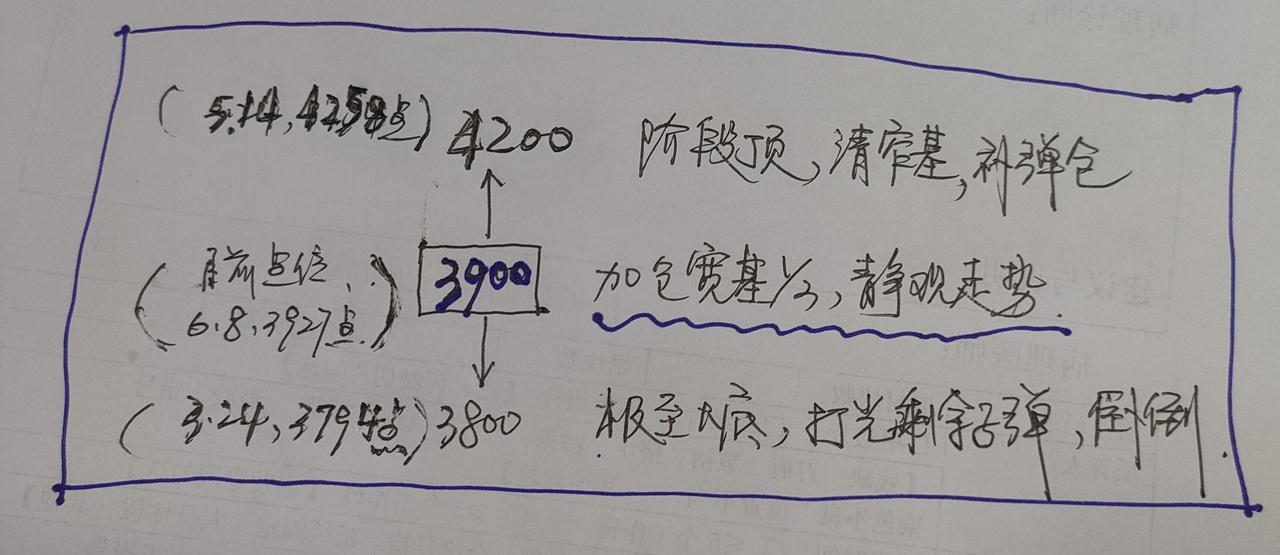 (5.14,4258点) 4200 阶段顶,清窄基,补弹仓
(目前点位, 6.8,3927点) 3900 加仓宽基1/3,静观走势.
(3.24,3794点) 3800 极至大底,打光剩余子弹,倒倒.